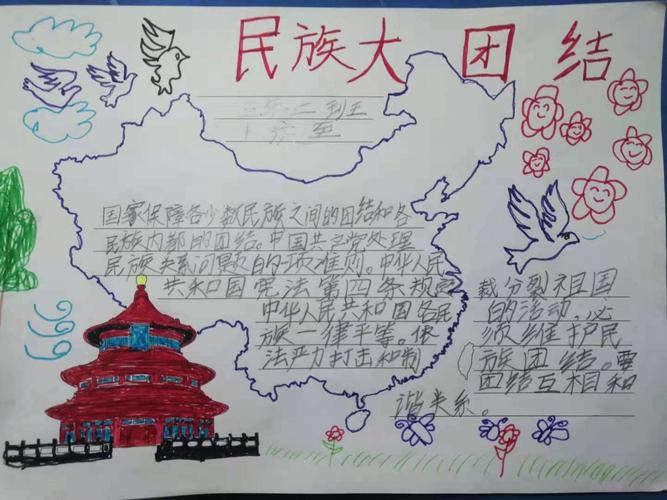 民族大团结
三年二班
国家保障各少数民族之间的团结和各
民族内部的团结。中国共产党处理
民族关系问题的项准则。中华人民
共和国宪法第四条规定
中华人民共和国各民
族一律平等。依
法严力打击和制
裁分裂祖国
的活动，必
须维护民
族团结。要
团结互相和
谐关系。